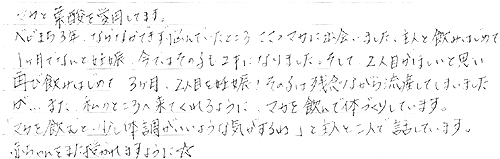 マカと葉酸を愛用してます。
ベビまち3年、なかなかできず悩んでいたところ、ここのマカに出会いました。主人と飲みはじめて
1ヶ月でなんと妊娠、今ではその子も2才になりました。そして、2人目がほしいと思い
再び飲みはじめて 3ヶ月、2人目を妊娠!その子は残念ながら流産してしまいました
が…また、私のところへ来てくれるように、マカを飲んで体づくりしています。
「マカを飲むと、少し体調がいいような気がするね」と主人と二人で話しています。
赤ちゃんをまた授かれますように☆